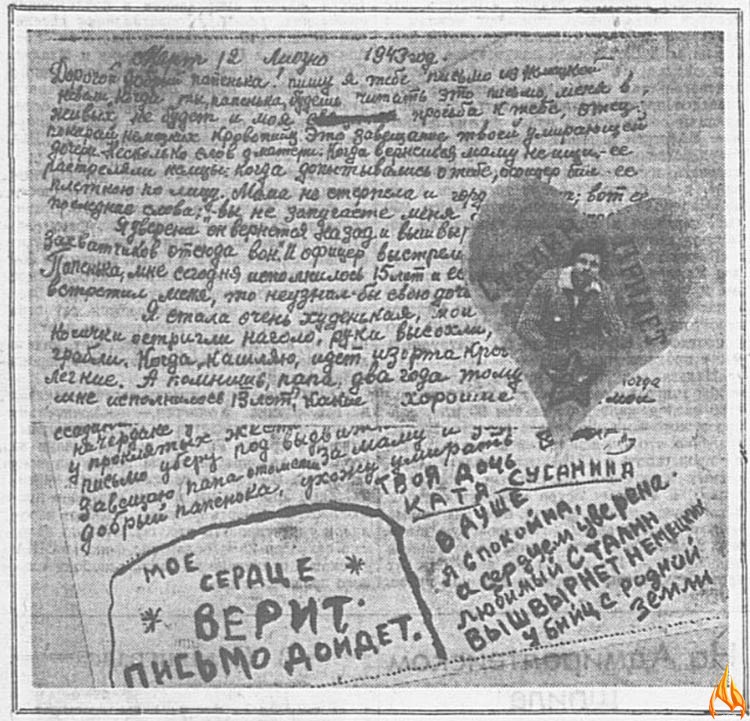 Март 12 Лиозно 1943 год.
Дорогой добрый папенька! пишу я тебе письмо из немецкой
неволи, когда ты, папенька, будешь читать это письмо, меня в
живых не будет и моя просьба к тебе, отец:
покарай немецких кровопийц. Это завещание твоей умирающей
дочери. Несколько слов о матери: когда вернешься, маму не ищи. ее
растреляли немцы: когда допытывались о тебе, офицер бил ее
плеткою по лицу. Мама не стерпела и гор вот ее
последние слова: "вы не запугаете меня
Я уверена он вернется назад и вышвыр
захватчиков отсюда вон". И офицер выстрел
Папенька, мне сегодня исполнилось 15 лет и ес
встретил меня, то неузнал-бы свою доч
Я стала очень худенькая, мои
косички остригли наголо, руки высохли,
грабли. Когда кашляю, идет изорта кро
легкие. А помнишь, папа, два года тому когда
мне исполнилось 13 лет. Какие хорошие мои
на чердаке
у проклятых
письмо уберу под
Завещаю, папа: отомсти за маму и
добрый папенька, ухожу умирать
ТВОЯ ДОЧЬ
КАТЯ СУСАНИНА
В ДУШЕ
Я СПОКОЙНА,
а сердцем уверена.
любимый СТАЛИН
ВЫШВЫРНЕТ НЕМЕЦКИХ
УБИЙЦ С РОДНОЙ
ЗЕМЛИ
МОЕ
СЕРДЦЕ
ВЕРИТ.
ПИСЬМО ДОЙДЕТ.